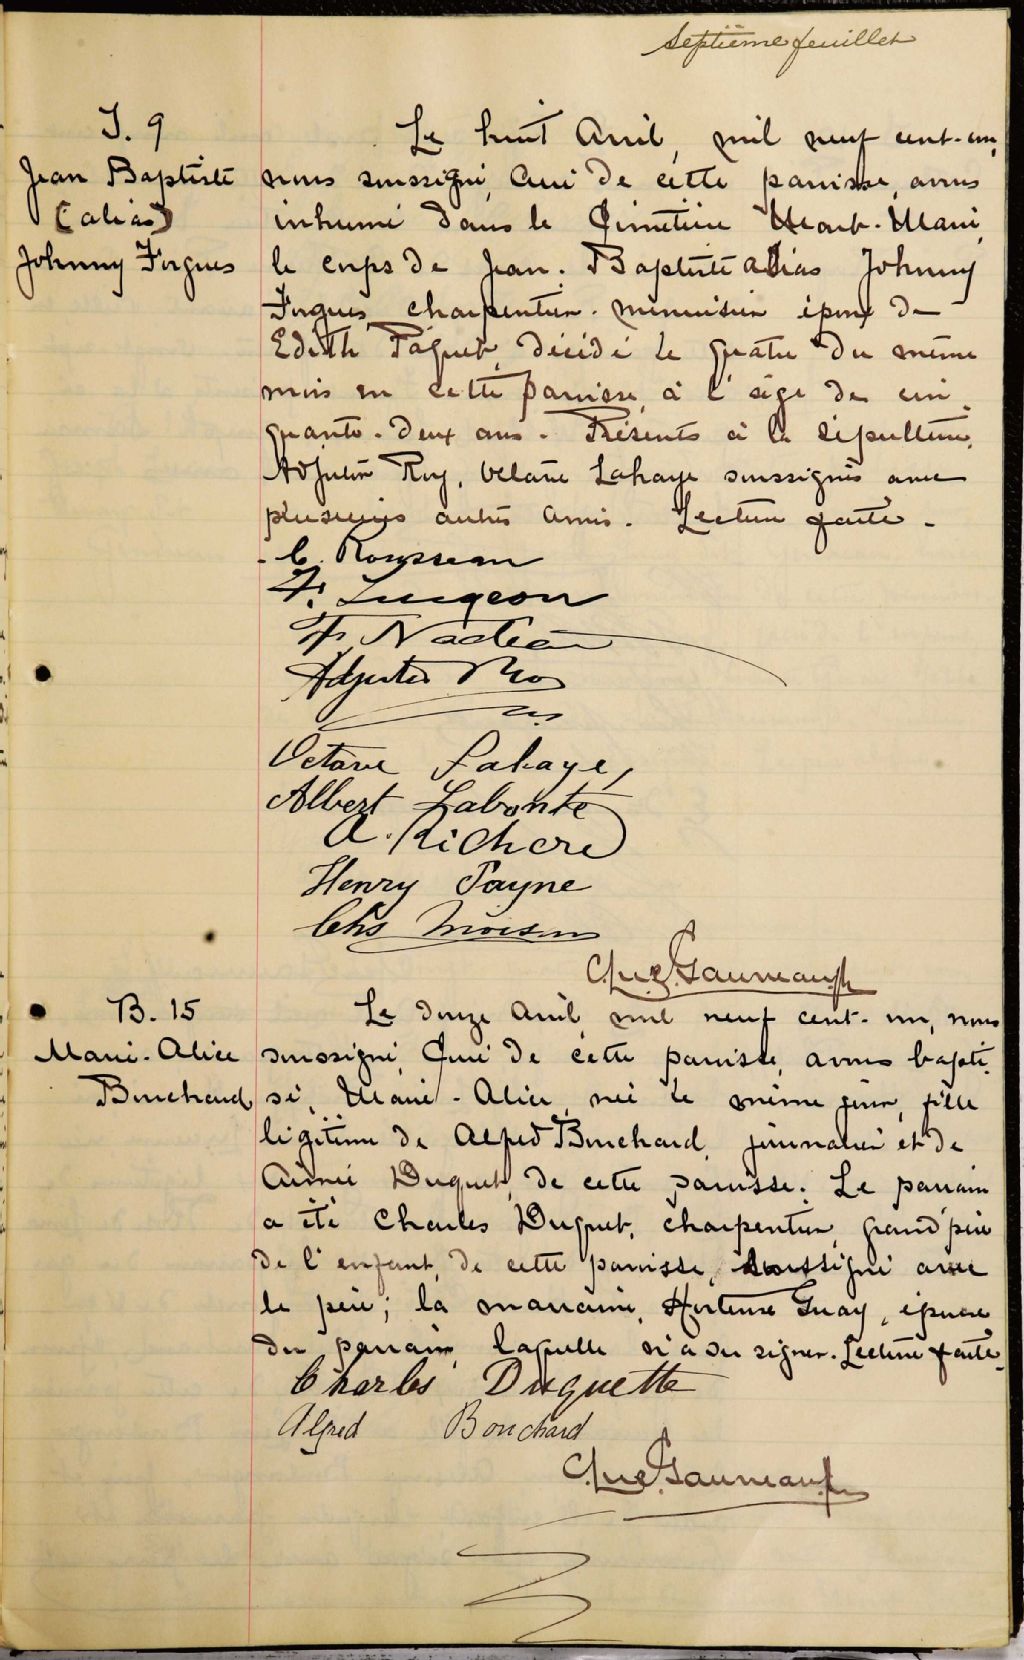 Septième feuillet
S. 9
Jean Baptiste
(alias)
Johnny Forgues
Le huit Avril, mil neuf cent-un,
nous soussigné, Curé de cette paroisse, avons
inhumé dans le Cimetière Mont-Marie,
le corps de Jean-Baptiste alias Johnny
Forgues, charpentier-menuisier, époux de
Edith Paquet, décédé le quatre du même
mois en cette paroisse, à l'âge de cin-
quante-deux ans. Présents à la sépulture,
Adjutor Roy, Octave Lahaye soussignés avec
plusieurs autres amis. Lecture faite.
F. Turgeon
F. Nadeau
Adjutor Roy
Octave Lahaye,
Albert Labonté
A. Richere
Henry Payne
Chs
B. 15
Marie-Alice
Bouchard
Le douze Avril, mil neuf cent-un, nous
soussigné, Curé de cette paroisse, avons bapti-
sé, Marie-Alice, née le même jour, fille
légitime de Alfred Bouchard, journalier et de
Aimée Duquet, de cette paroisse. Le parrain
a été Charles Duquet, charpentier, grand'père
de l'enfant, de cette paroisse, soussigné avec
le père; la marraine, Hortense Guay, épouse
du parrain, laquelle n'a su signer. Lecture faite.
Charles Duquette
Alfred Bouchard